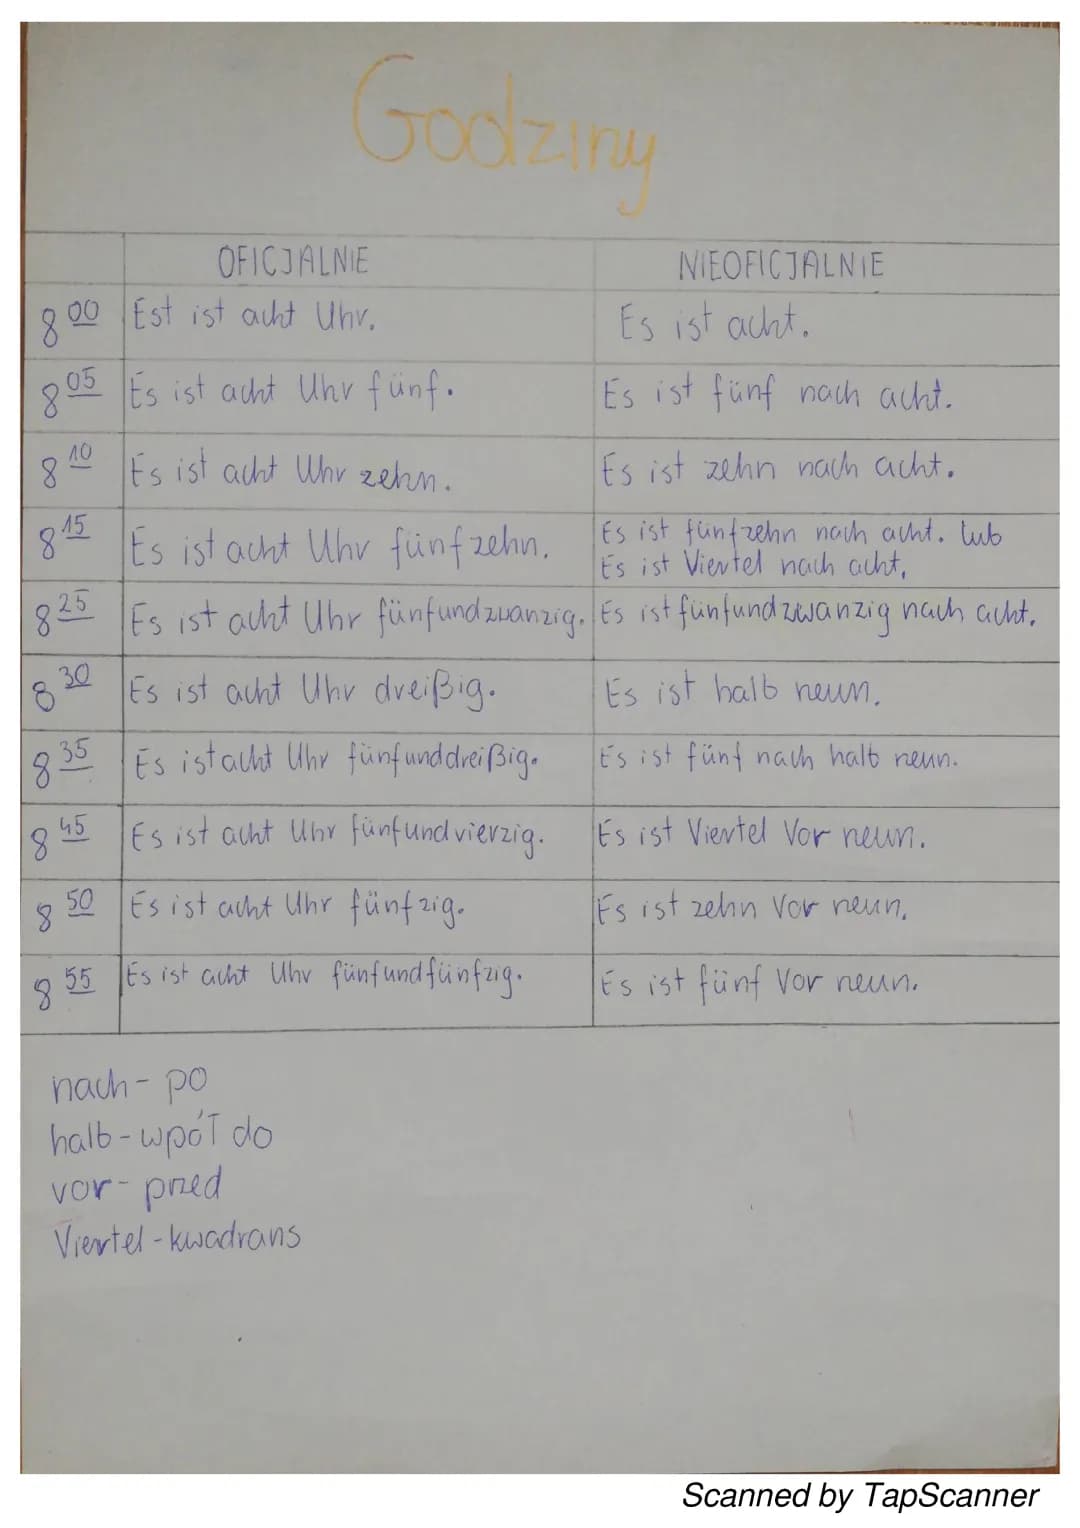 Godziny
OFICJALNIE NIEOFICJALNIE
8 00 Est ist acht Uhr. Es ist acht.
8 05 Es ist acht Uhr fünf. Es ist fünf nach acht.
8 10 Es ist acht Uhr zehn. Es ist zehn nach acht.
8 15 Es ist acht Uhr fünfzehn. Es ist fünfzehn nach acht. lub
Es ist Viertel nach acht.
8 25 Es ist acht Uhr fünfundzwanzig. Es ist fünfundzwanzig nach acht.
8 30 Es ist acht Uhr dreißig. Es ist halb neun.
8 35 Es ist acht Uhr fünfunddreißig. Es ist fünf nach halb neun.
8 45 Es ist acht Uhr fünfundvierzig. Es ist Viertel Vor neun.
8 50 Es ist acht Uhr fünfzig. Es ist zehn Vor neun.
8 55 Es ist acht Uhr fünfundfünfzig. Es ist fünf Vor neun.
nach - po
halb - wpół do
vor - przed
Viertel - kwadrans
Scanned by TapScanner